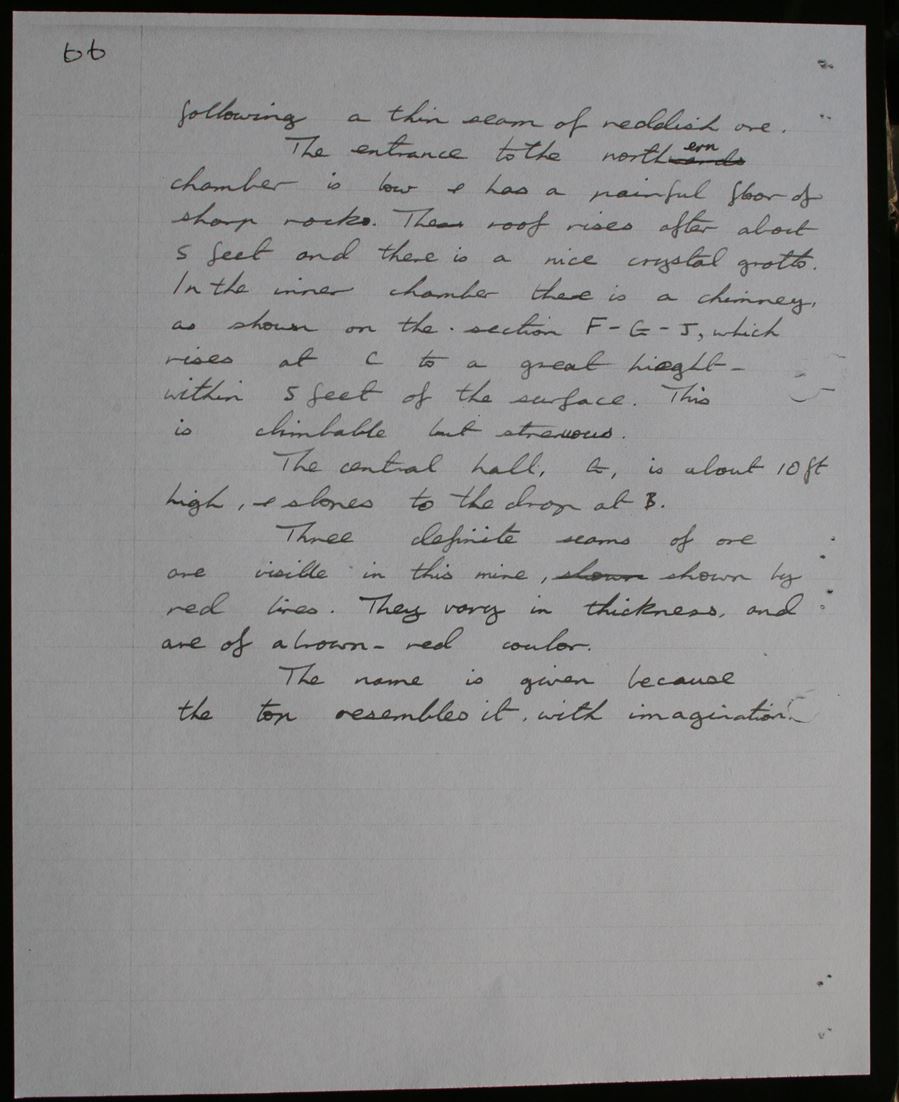 66
following a thin seam of reddish ore.
The entrance to the northern
chamber is low & has a painful floor of
sharp rocks. The roof rises after about
5 feet and there is a nice crystal grotto.
In the inner chamber there is a chimney,
as shown on the section F-G-J, which
rises at C to a great hieght -
within 5 feet of the surface. This
is climbable but strenuous.
The central hall, G, is about 10 ft
high, & slopes to the drop at B.
Three definite seams of ore
are visible in this mine, shown shown by
red lines. They vary in thickness, and
are of a brown-red coulor.
The name is given because
the top resembles it, with imagination.